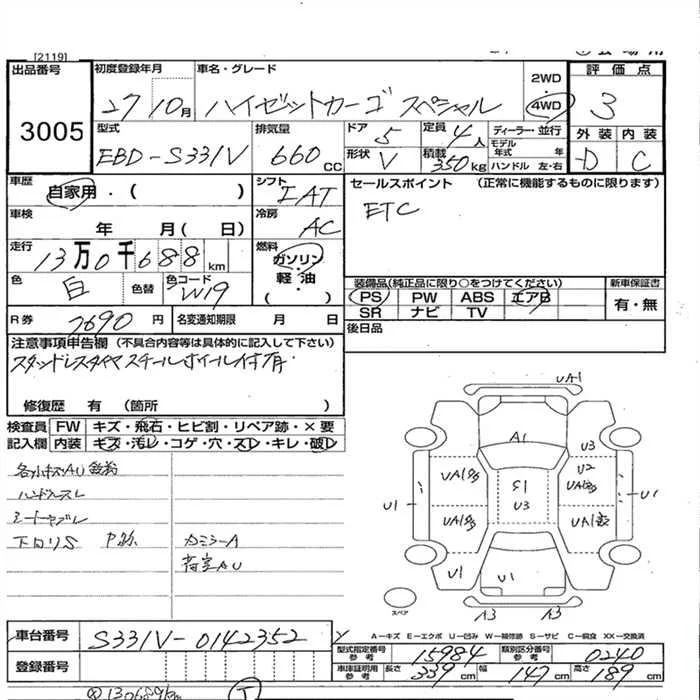 [2119]
出品番号 3005
初度登録年月 27 10月
車名・グレード ハイゼットカーゴ スペシャル
2WD
4WD
評価点 3
外装 D 内装 C
型式 EBD-S331V
排気量 660 CC
ドア 5
定員 4人
形状 V
積載 350kg
ディーラー・並行
モデル年式 年
ハンドル 左・右
車歴 自家用・( )
シフト IAT
セールスポイント (正常に機能するものに限ります)
ETC
車検 年 月( 日)
冷房 AC
走行 13万0千688km
燃料 ガソリン・軽油・( )
色 白 色替 色コード W19
装備品(純正品に限り○をつけてください)
PS PW ABS エアB
SR ナビ TV
新車保証書 有・無
R券 7690円
名変通知期限 月 日
後日品
注意事項申告欄 (不具合内容等は具体的に記入して下さい)
スタッドレスタイヤスチールホイール付有
修復歴 有 (箇所 )
検査員記入欄
FW キズ・飛石・ヒビ割・リペア跡・×要
内装 キズ・汚レ・コゲ・穴・スレ・キレ・破レ
ハンドルスレ
シートヤブレ
下回りS
カミラーA
荷室AU
UA1
A1
U3
U2
U1
U1
S1
U3
U1
U1
A3 A3
スペア
車台番号 S331V-0142352
登録番号
A-キズ E-エクボ U-凹み W-補修跡 S-サビ C-腐食 XX-交換済
型式指定番号参考 15984
類別区分番号参考 0240
車庫証明用参考 長さ 339cm 幅 147cm 高さ 189cm
130689km